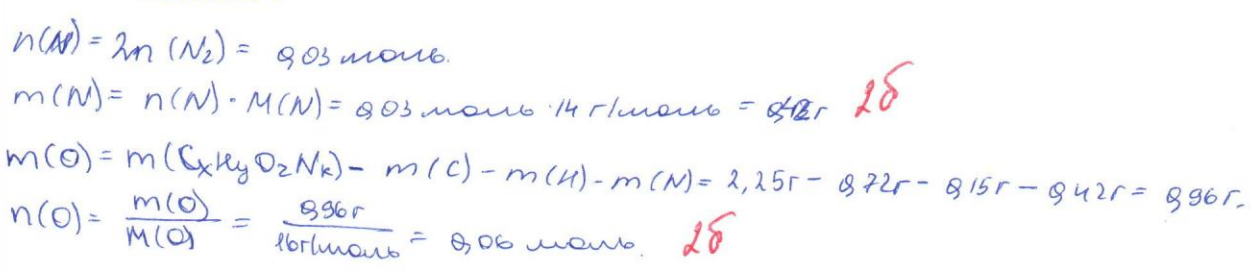 n(N) = 2n (N₂) = 0,03 моль.
m(N) = n(N) · M(N) = 0,03 моль · 14 г/моль = 0,42г 2б
m(O) = m(CxHyOzNk) - m(C) - m(H) - m(N) = 2,25г - 0,72г - 0,15г - 0,42г = 0,96г.
n(O) = m(O)/M(O) = 0,96г/16г/моль = 0,06 моль. 2б